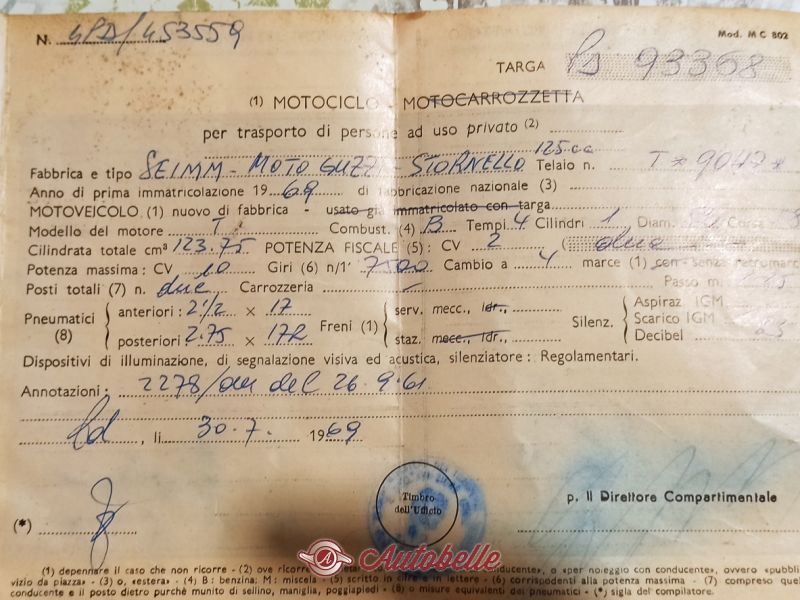 N. 4PD/453559
Mod. M C 802
TARGA PD 93368
(1) MOTOCICLO - MOTOCARROZZETTA
per trasporto di persone ad uso privato (2)
125 cc
Fabbrica e tipo SEIMM - MOTO GUZZI - STORNELLO Telaio n. T * 9047 *
Anno di prima immatricolazione 19 69 di fabbricazione nazionale (3)
MOTOVEICOLO (1) nuovo di fabbrica - usato già immatricolato con targa
Modello del motore T Combust. (4) B Tempi 4 Cilindri 1 Diam. Corsa
Cilindrata totale cm³ 123.75 POTENZA FISCALE (5): CV 2 ( due
Potenza massima: CV 10 Giri (6) n/1' 7500 Cambio a 4 marce (1) con - senza retromarc
Posti totali (7) n. due Carrozzeria - Passo m.
Pneumatici (8) anteriori: 2 1/2 × 17 Freni (1) serv. mecc., idr., Silenz. Aspiraz IGM
posteriori 2.75 × 17R staz. mecc., idr., Scarico IGM
Decibel
Dispositivi di illuminazione, di segnalazione visiva ed acustica, silenziatore: Regolamentari.
Annotazioni: 2278/ del 26.9.61
Pd, lì 30.7. 1969
Timbro
dell'Ufficio
p. Il Direttore Compartimentale
(*)
Autobelle
(1) depennare il caso che non ricorre - (2) ove ricorre conducente», o «per noleggio con conducente», ovvero «pubbli
vizio da piazza» - (3) o, «estera» - (4) B: benzina; M: miscela - (5) scritto in cifre e in lettere - (6) corrispondenti alla potenza massima - (7) compreso quel
conducente e il posto dietro purchè munito di sellino, maniglia, poggiapiedi - (8) o misure equivalenti dei pneumatici - (*) sigla del compilatore.